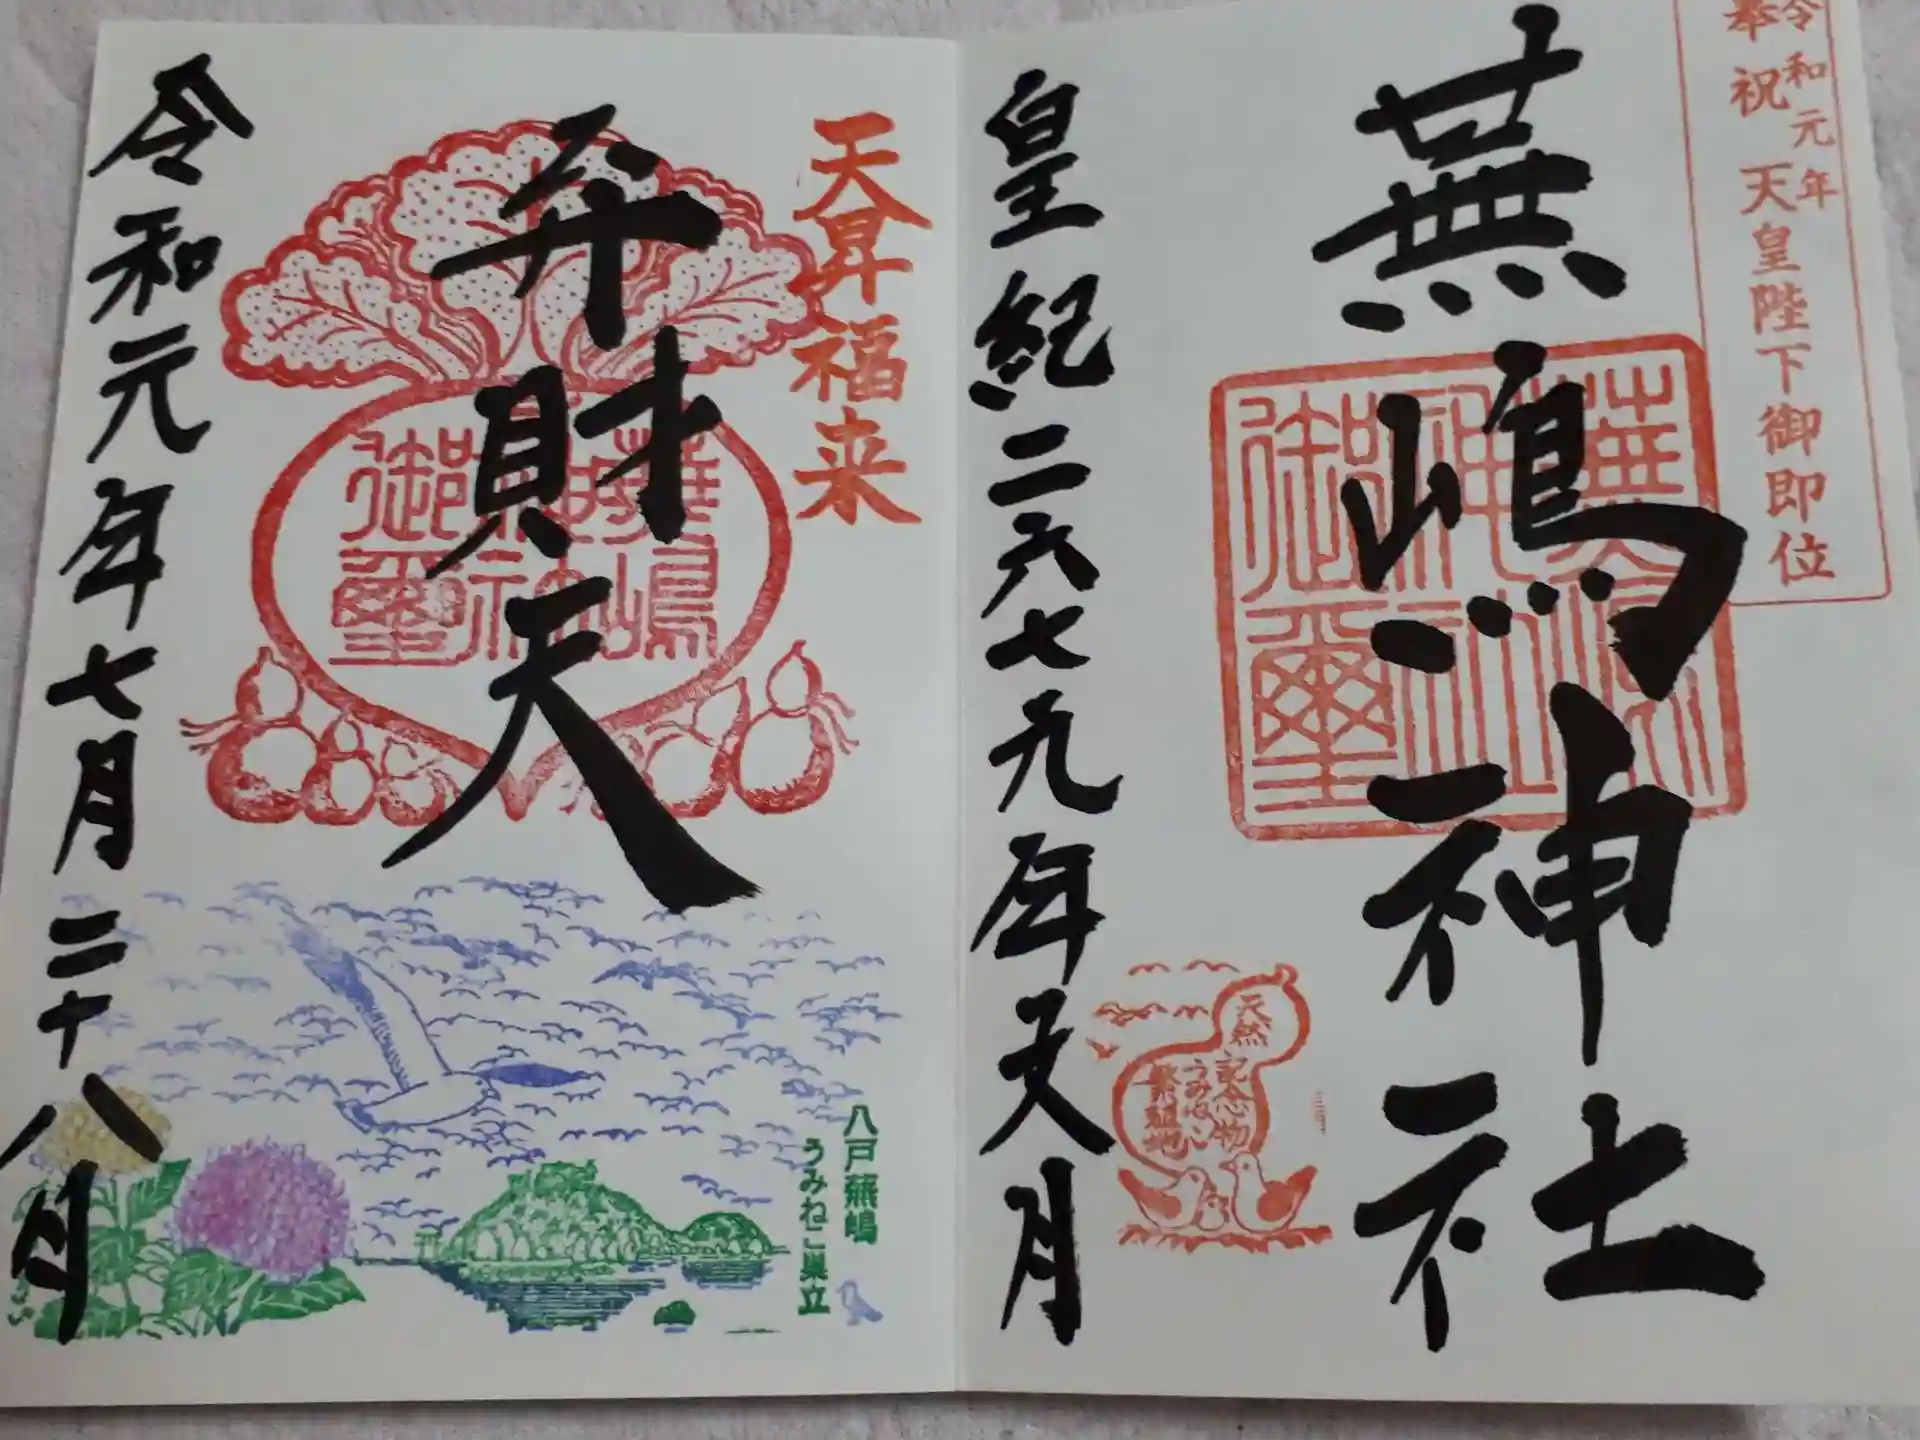 令和元年
奉祝 天皇陛下御即位
蕪嶋神社
蕪嶋
神社
御璽
天然
記念物
うみねこ
繁殖地
皇紀二六七九年文月
天昇福来
弁財天
蕪嶋
御璽
八戸蕪嶋
うみねこ巣立
令和元年七月二十八日